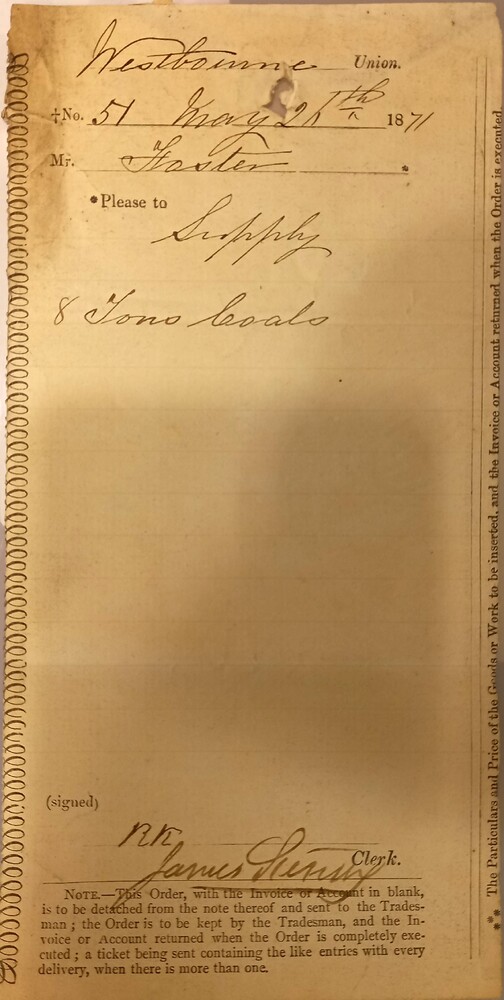 Westbourne Union.
‡No. 51 May 2 th 1871
Mr. Foster
*Please to
Supply
8 Tons Coals
(signed)
RK
James Clerk.
NOTE.—This Order, with the Invoice or Account in blank,
is to be detached from the note thereof and sent to the Trades-
man ; the Order is to be kept by the Tradesman, and the In-
voice or Account returned when the Order is completely exe-
cuted ; a ticket being sent containing the like entries with every
delivery, when there is more than one.
*** The Particulars and Price of the Goods or Work to be inserted, and the Invoice or Account returned when the Order is executed